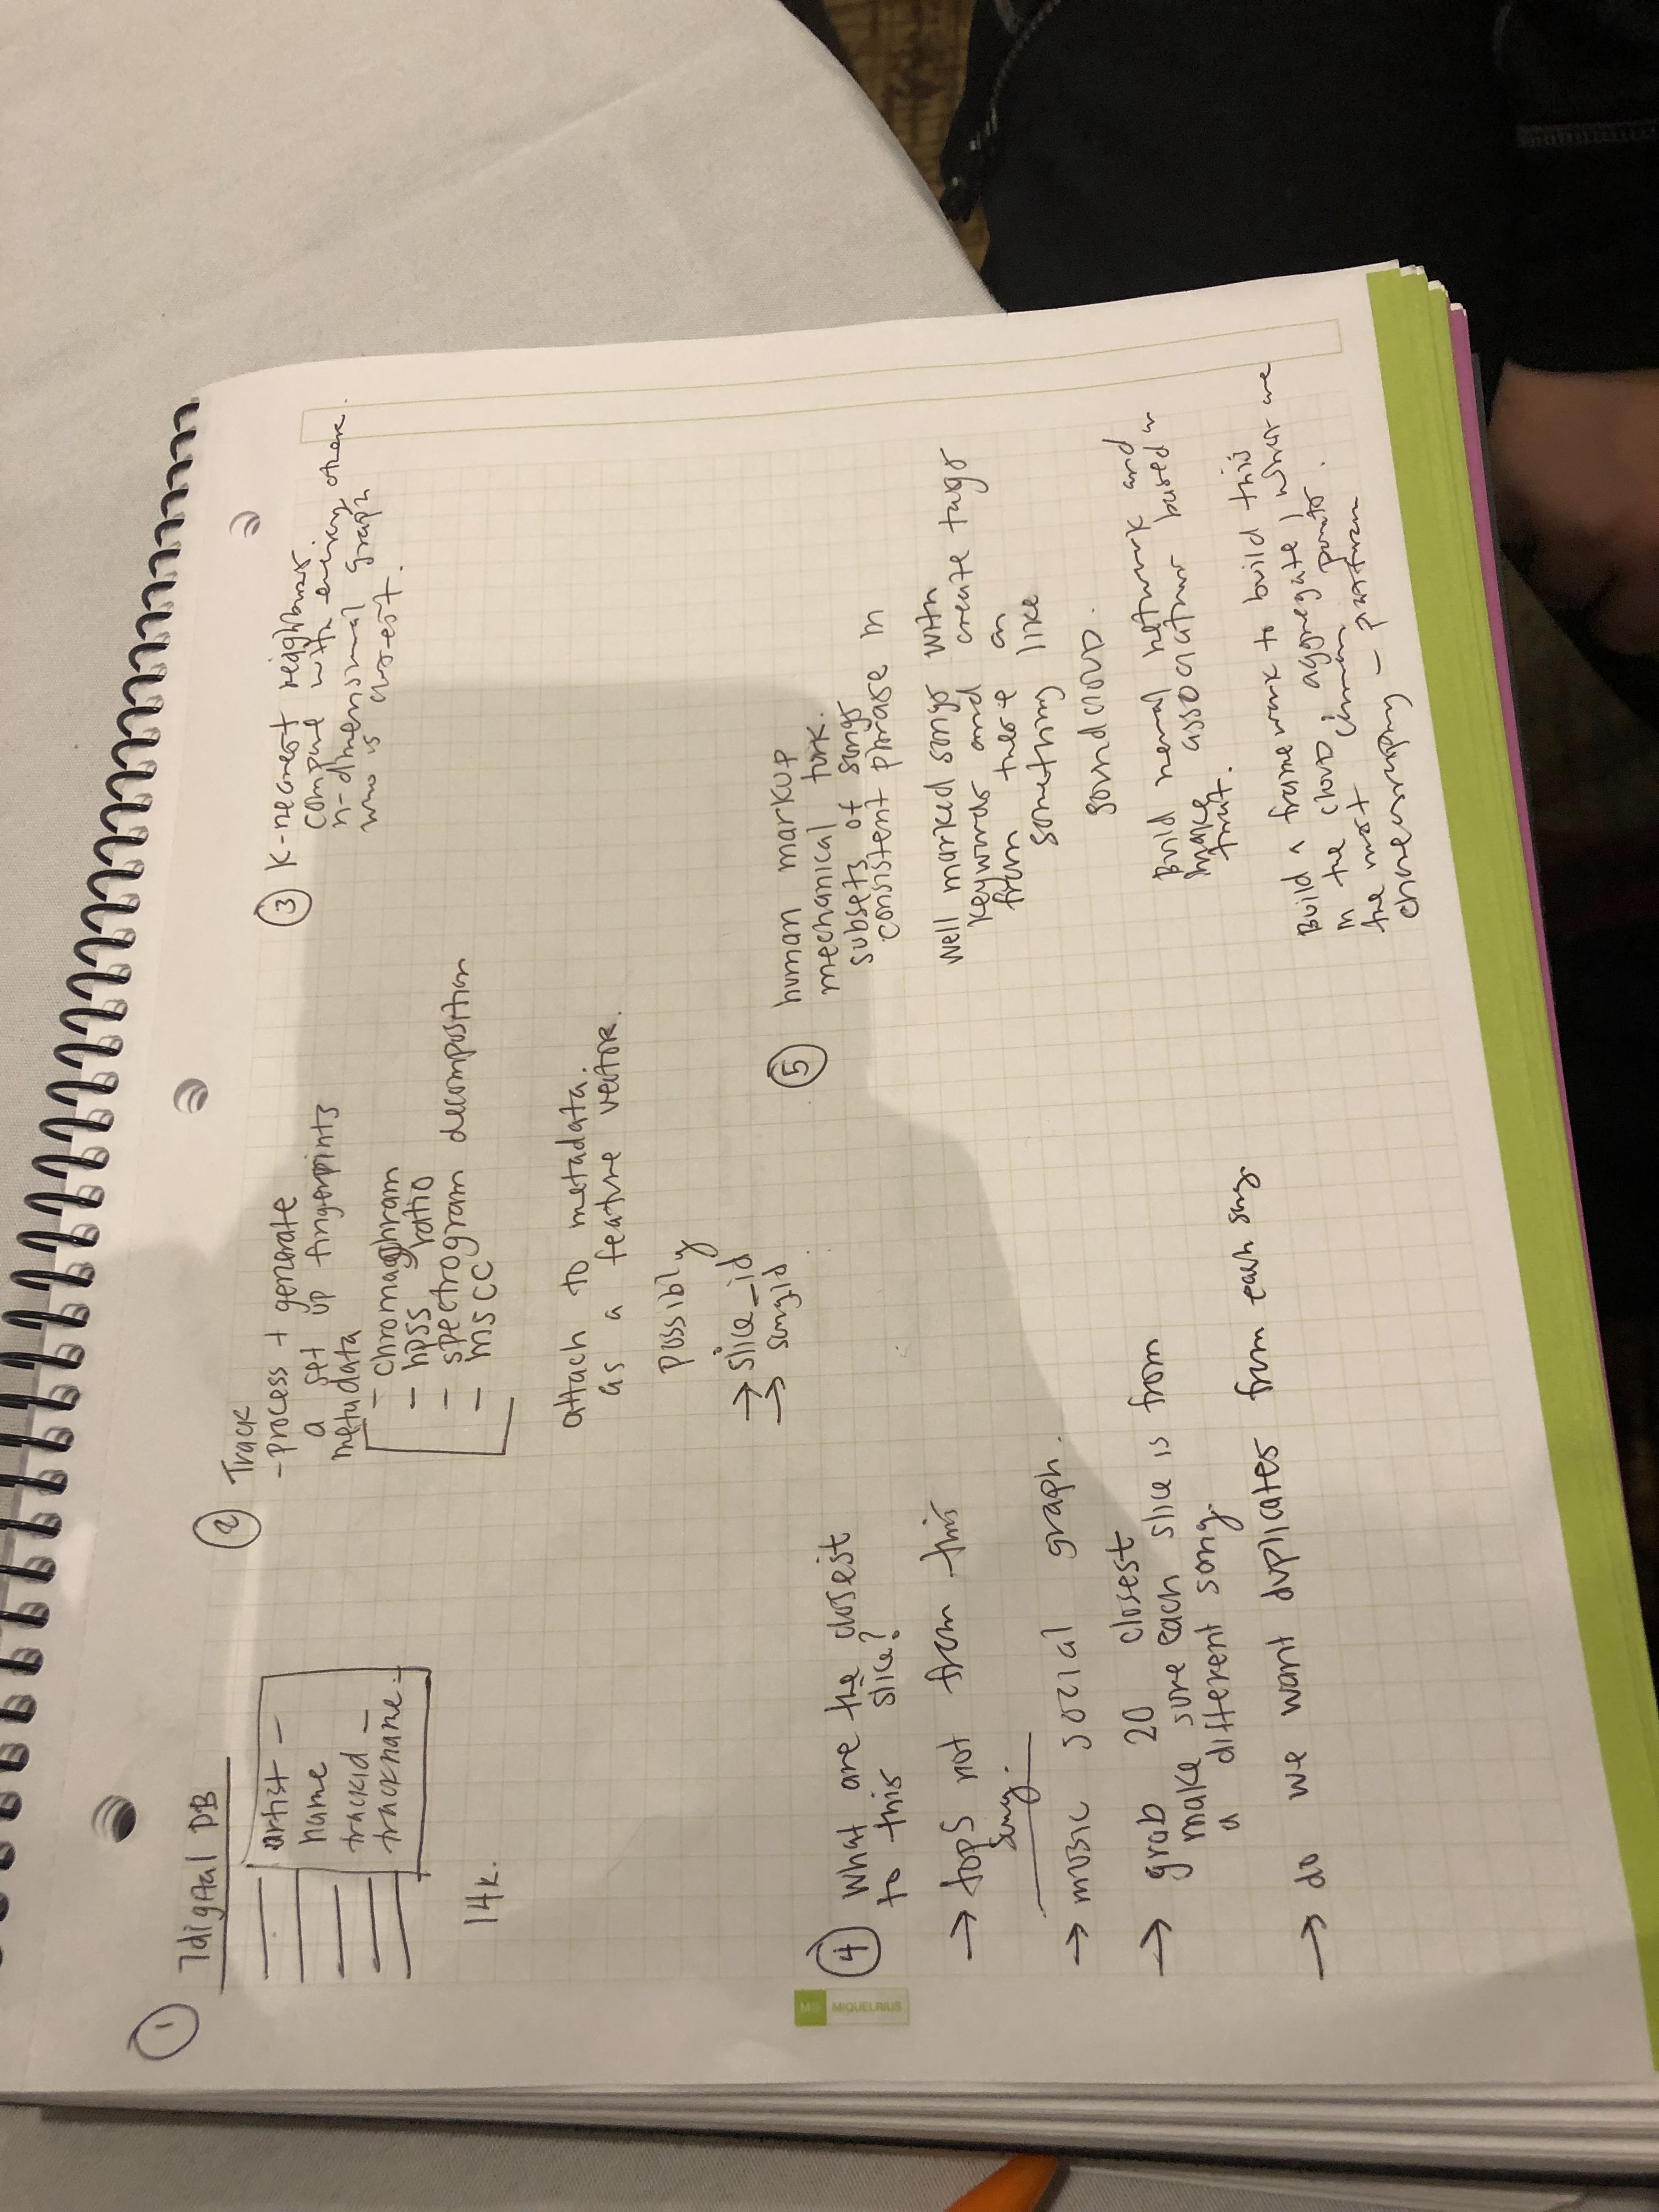 ①
7digital DB
artist –
name
trackid –
trackname –
14k.
② Track
- process + generate
a set up fingerprints
metadata
- chromaghram
- hpss ratio
- spectrogram decomposition
- mscc
attach to metadata.
as a feature vector.
possibly
→ slice_id
→ songid
③ K-nearest neighbors
compare with every other.
n-dimensional graph
who is closest.
④ What are the closest
to this slice?
→ tops not from this
song.
→ music social graph.
→ grab 20 closest
make sure each slice is from
a different song.
→ do we want duplicates from each song.
⑤ human markup
mechanical turk.
subsets of songs
consistent phrase in
well marked songs with
keywords and create tags
from these on
something like
soundcloud.
Build neural network and
make associations based on
that.
Build a framework to build this
in the cloud, aggregate / what are
the most common points.
- partition
MIQUELRIUS